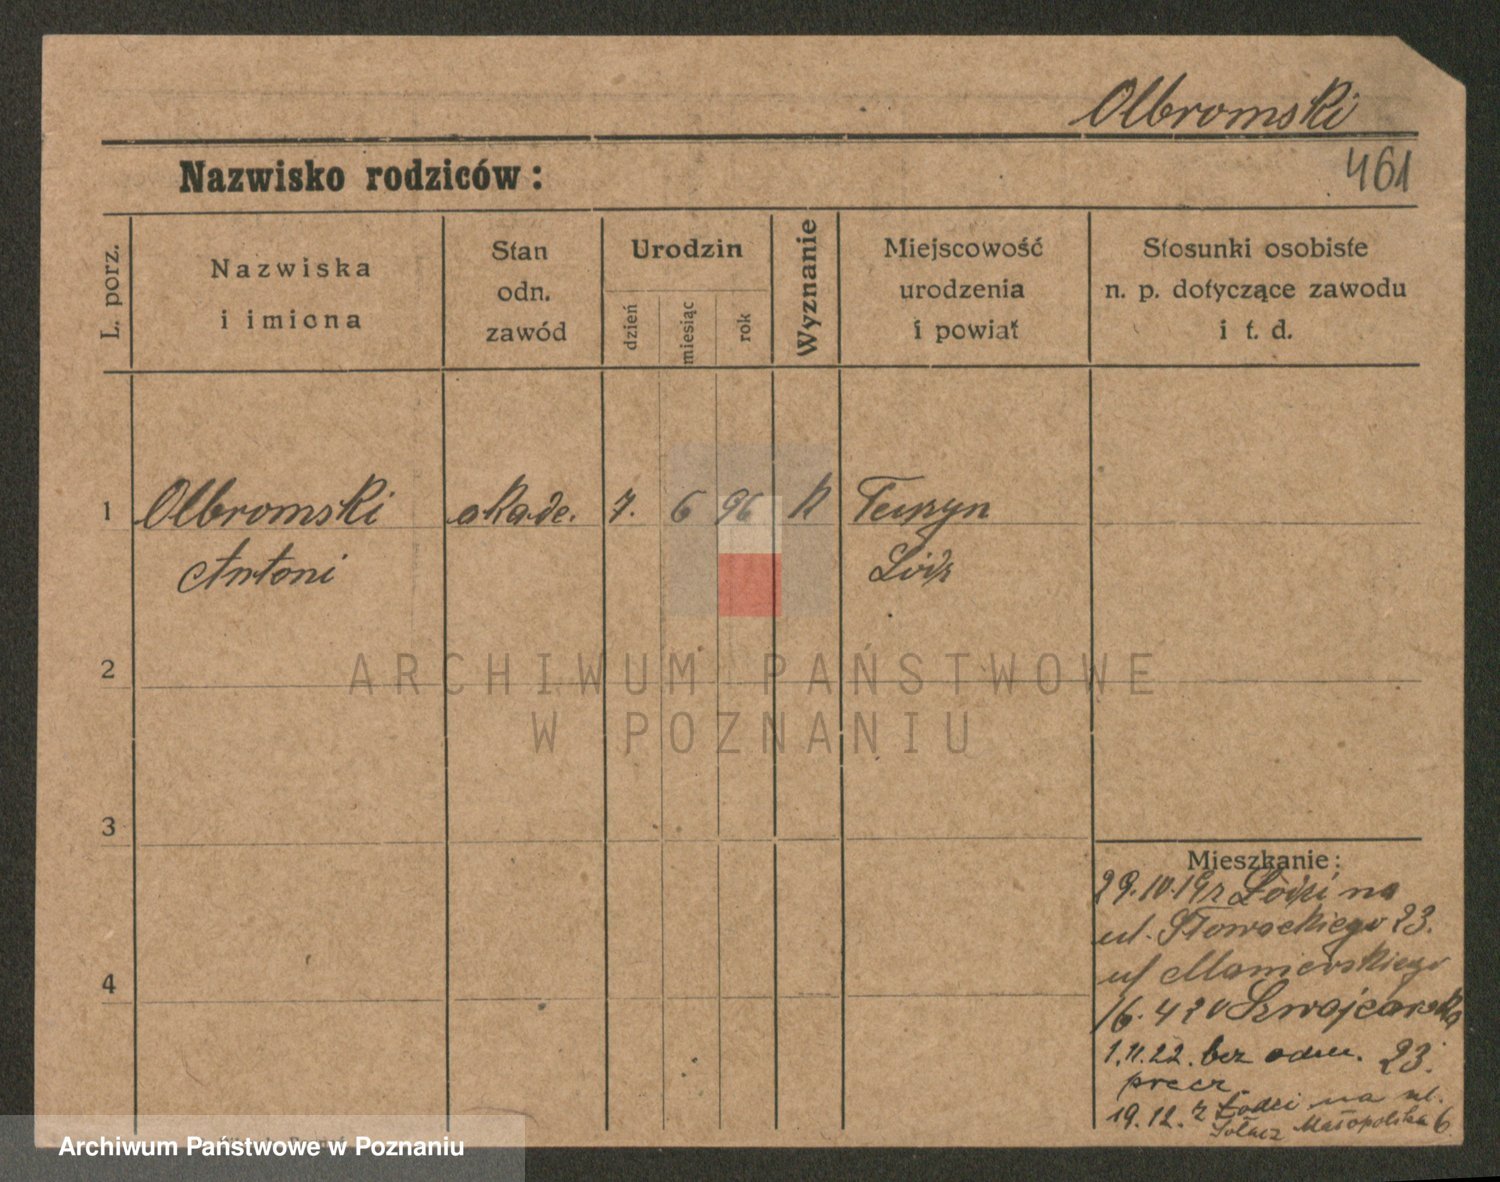 Olbromski
461
Nazwisko rodziców:
L. porz.
Nazwiska
i imiona
Stan
odn.
zawód
Urodzin
dzień
miesiąc
rok
Wyznanie
Miejscowość
urodzenia
i powiat
Stosunki osobiste
n. p. dotyczące zawodu
i t. d.
1
Olbromski
Antoni
akade.
7.
6
96
k
Tuszyn
Łódz
2
3
4
Mieszkanie:
29.10.19 z Łodzi na
ul. Słowackiego 23.
ul
16.4 20 Szwajcarska
23.
1.11.22. bez odm.
precz.
19.12. z Łodzi na ul.
Sołacz Małopolska 6
ARCHIWUM PAŃSTWOWE
W POZNANIU
Archiwum Państwowe w Poznaniu